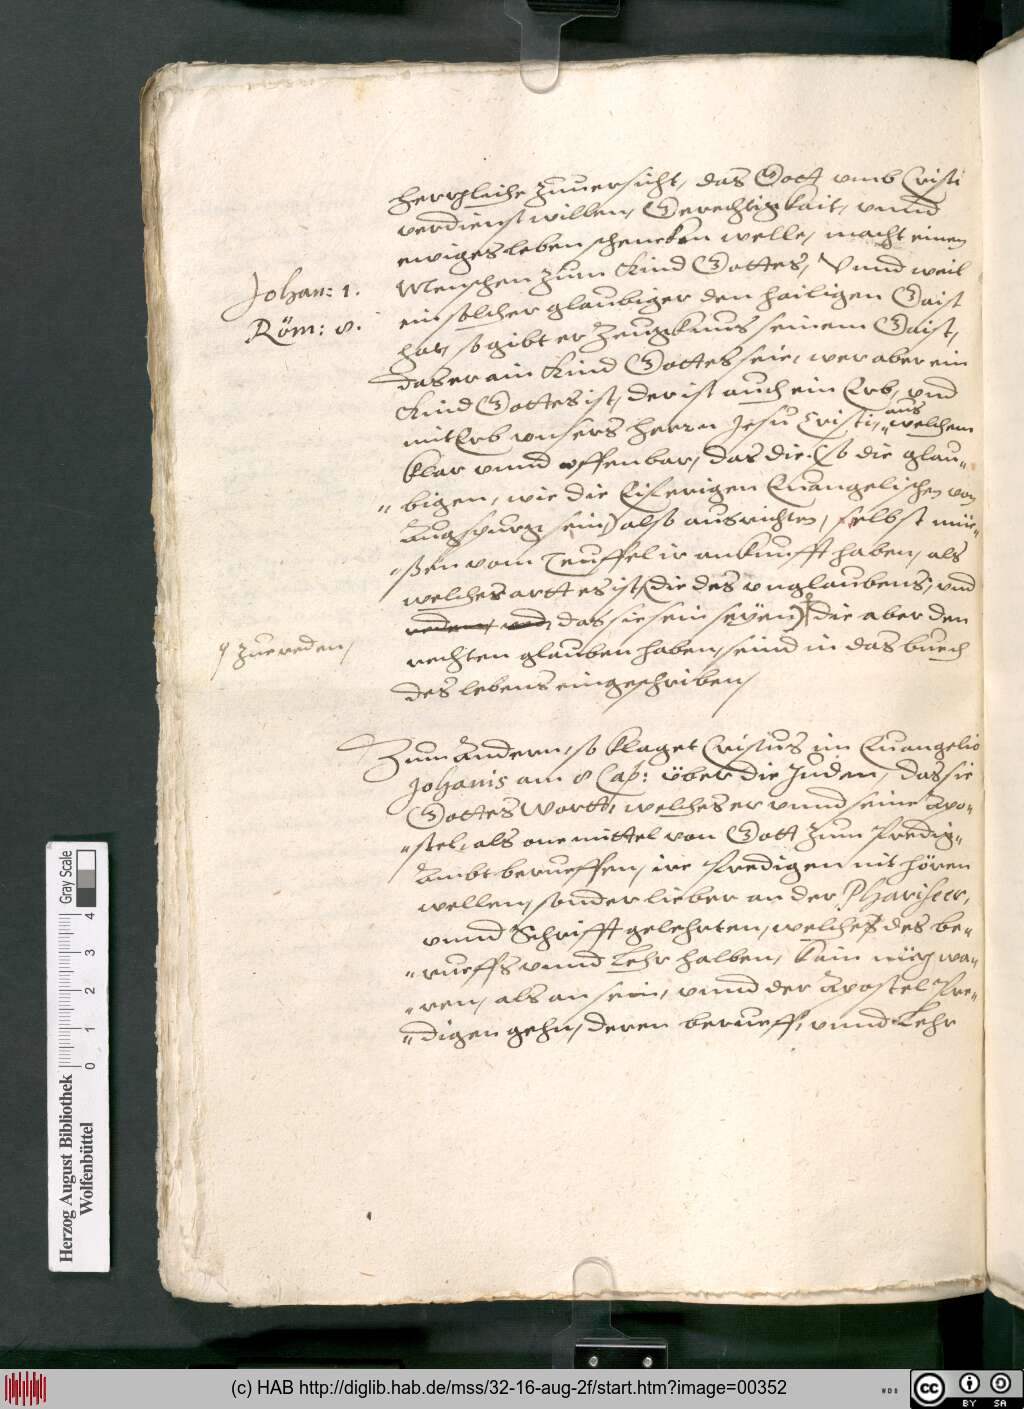 herzgleiche zuuersicht, das Gott vmb Cristi
verdienst willen, Gerechtigkait, vnnd
ewiges leben schencken welle, macht einen
Johan: 1.
Menschen zum Kind Gottes, Vnnd weil
Röm: 8.
ein solcher glaubiger den hailigen Gaist
hat, so gibt er Zeugknus seinem Gaist,
das er ain Kind Gottes seie, wer aber ein
Kind Gottes ist, der ist auch ein Erb, vnd
mit Erb vnsers herrn Jesu Cristi, aus welchem
klar vnnd offenbar, das die (so die glau-
bigen, wie die Eiferigen Euangelischen von
Augspurg sein) also ausrichten, selbst müe-
ßen vom Teuffel ir ankunfft haben, als
welches artt es ist (die des vnglaubens, vnd
reden, vnd, das sie sein seyen) die aber den
zuereden,
rechten glauben haben, seind in das buech
des lebens eingeschriben,
Zum Andern, so klaget Cristus im Euangelio
Johanis am 8 Cap: über die Juden, das sie
Gottes Wortt, welches er vnnd seine Apo-
stel, als one mittel von Gott zum Predig-
Ambt berueffen, ire Predigen nit hören
wellen, sonder lieber an der Phariseer,
vnnd Schrifft gelehrten, welches des be-
rueffs vnnd Lehr halben, kain nütz wa-
ren, als an sein, vnnd der Apostel Pre-
digen gehn, deren berueff, vnnd Lehr
Herzog August Bibliothek
Wolfenbüttel
Gray Scale
0 1 2 3 4
(c) HAB http://diglib.hab.de/mss/32-16-aug-2f/start.htm?image=00352
WDB
cc
BY SA